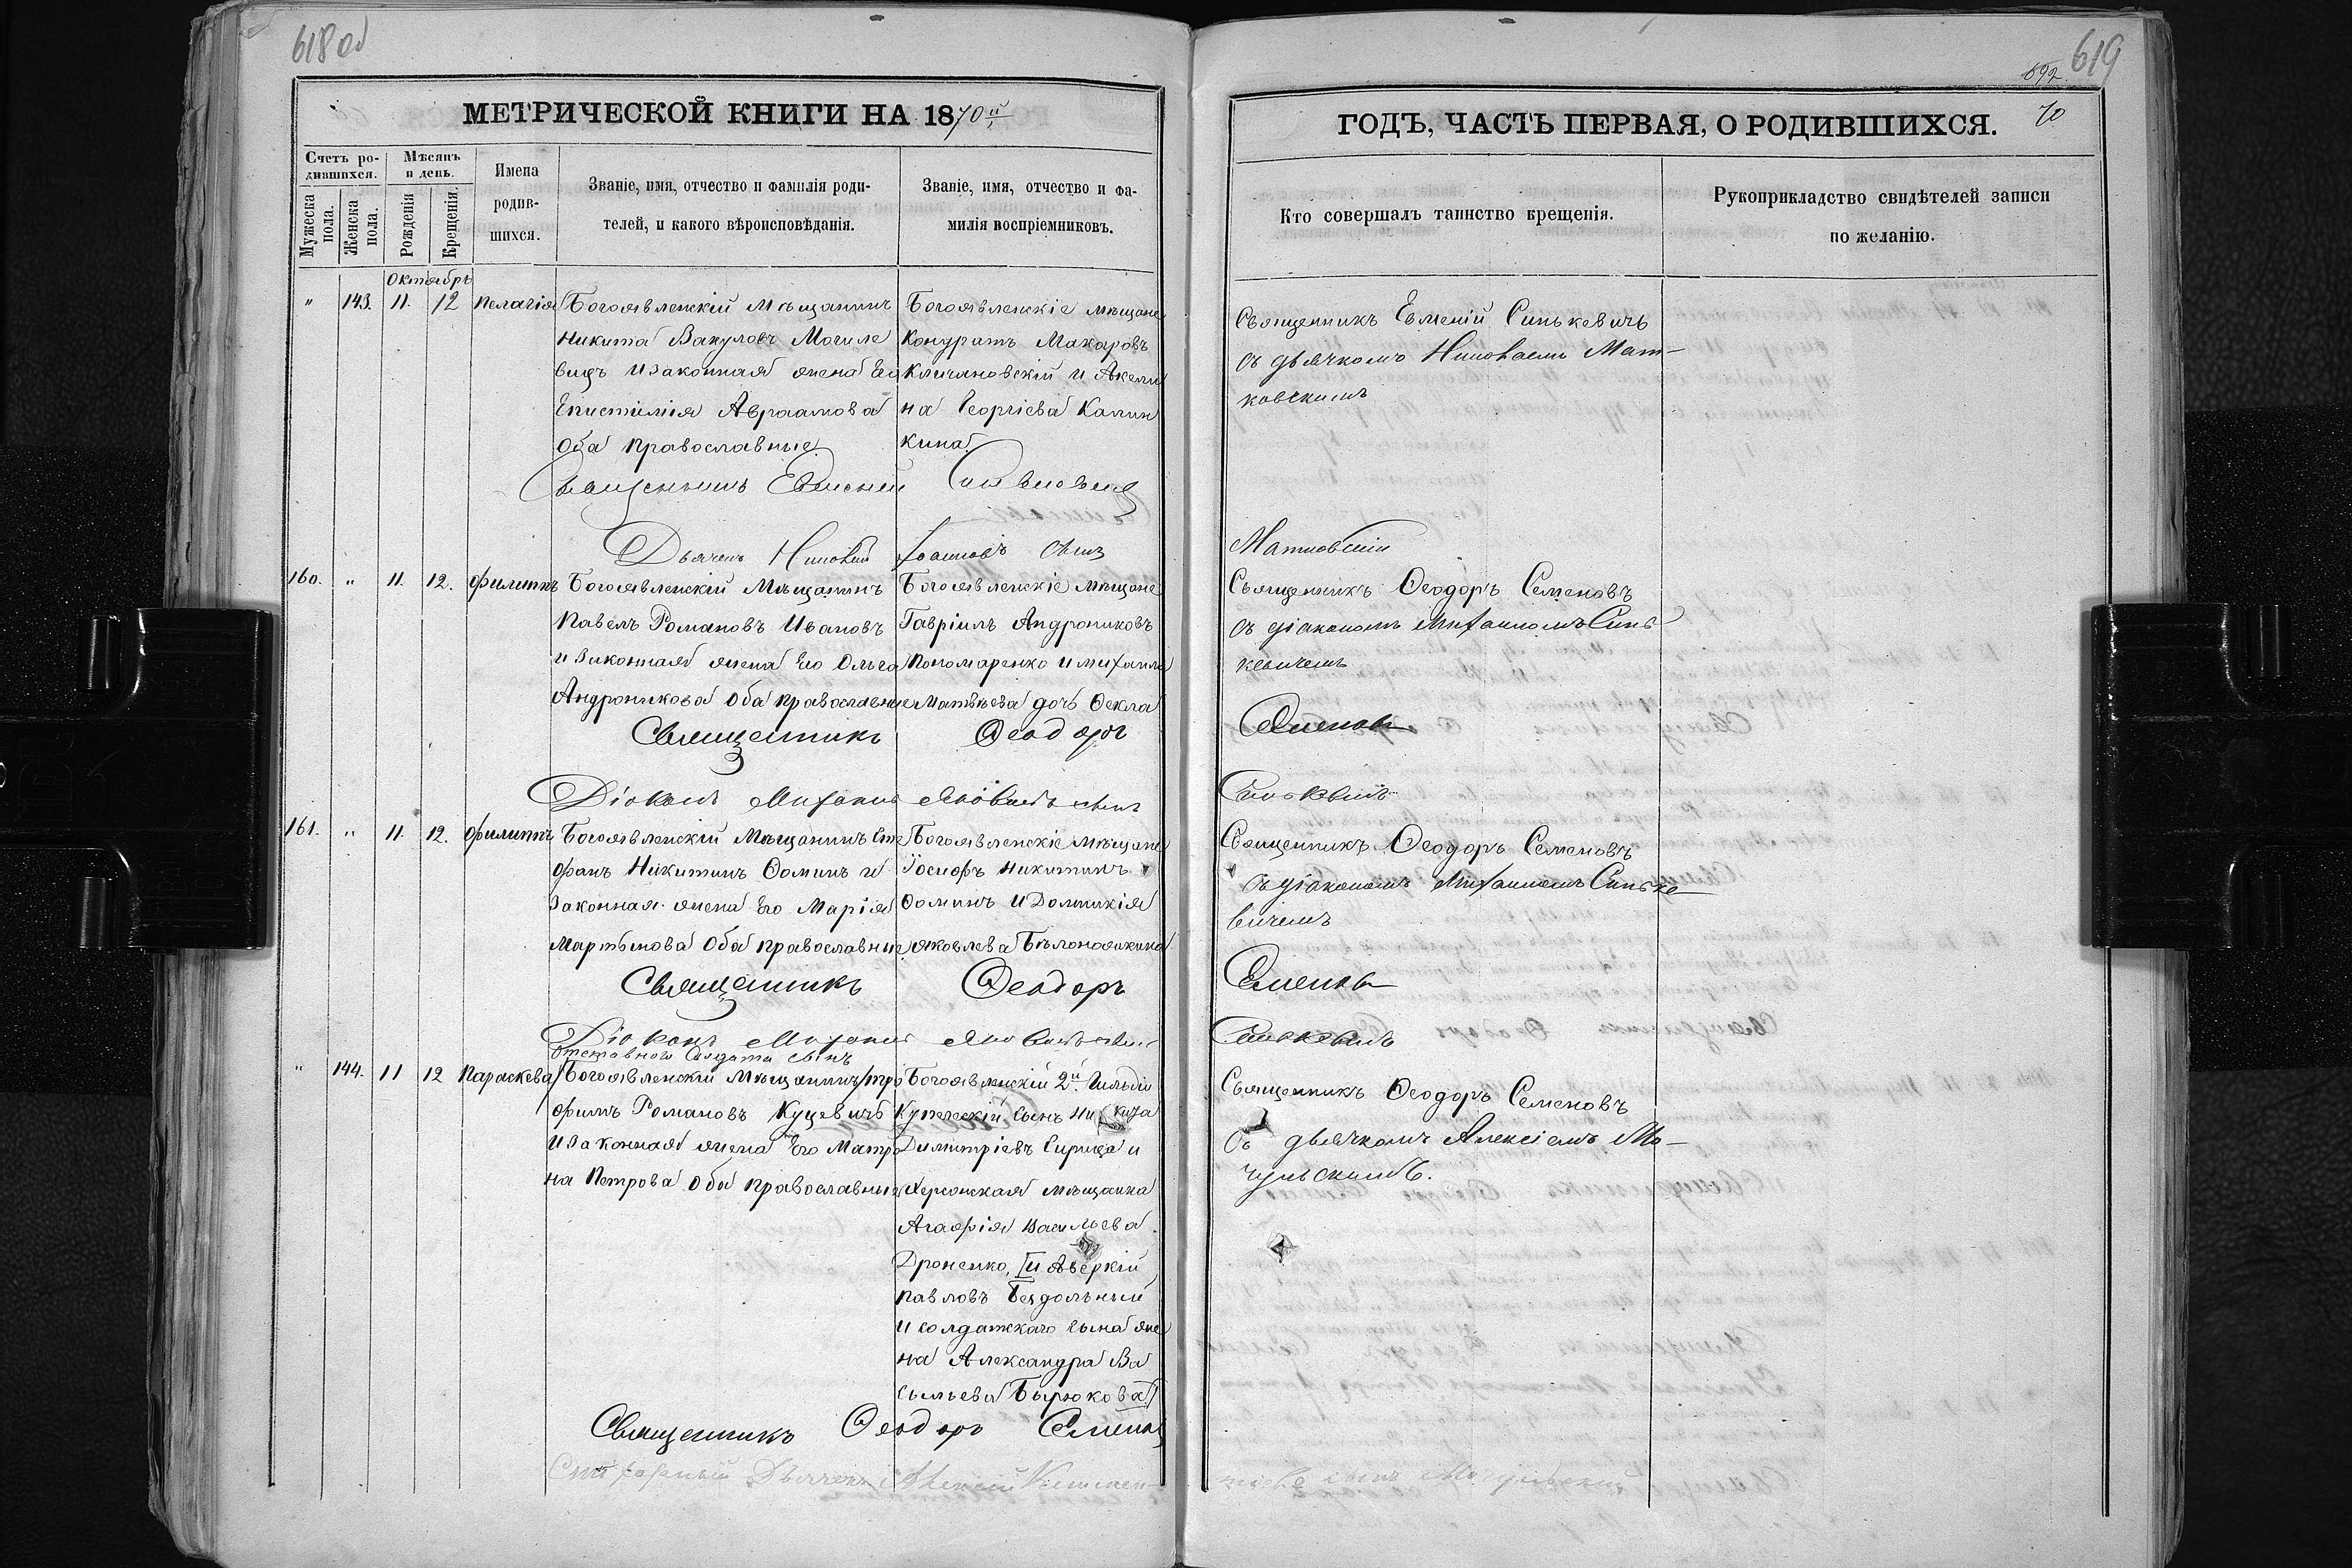 618 об
МЕТРИЧЕСКОЙ КНИГИ НА 1870й
Счетъ ро-
дившихся.
Мѣсяцъ
и день.
Мужеска
пола.
Женска
пола.
Рожденія
Крещенія.
Имена
родив-
шихся.
Званіе, имя, отчество и фамилія роди-
телей, и какого вѣроисповѣданія.
Званіе, имя, отчество и фа-
милія воспріемниковъ.
Октябрь
" 143. 11. 12 Пелагія
Богоявленскій Мѣщанинъ
Никита Вакуловъ Могиле
вицъ и законная жена Его
Епистимія Авраамова
Оба Православные
Богоявленскіе мѣщане
Кондратъ Макаровъ
Кличановскій и Акели
на Георгіева Калин
кина
Священникъ Евменій
Дьячекъ Николай Іоанновъ сынъ
160. " 11. 12. Филиппъ
Богоявленскій Мѣщанинъ
Павелъ Романовъ Ивановъ
и Законная жена Его Ольга
Андроникова Оба православные
Богоявленскіе мѣщане
Гавріилъ Андрониковъ
Пономаренко и Михаила
Матвѣева дочь Ѳекла
Священникъ Ѳеодоръ
Діаконъ Михаилъ сынъ
161. " 11. 12. Филиппъ
Богоявленскій Мѣщанинъ Сте
фанъ Никитинъ Ѳоминъ и
Законная жена Его Марія
Мартынова Оба православные
Богоявленскіе мѣщане
Іосифъ Никитинъ
Ѳоминъ и Домникія
Яковлева Бѣлоножкина
Священникъ Ѳеодоръ
Діаконъ Михаилъ
Отставнаго Солдата сынъ
" 144. 11 12 Параскева
Богоявленскій Мѣщанинъ Тро
фимъ Романовъ Куцевичъ
и Законная жена Его Матро
на Петрова Оба православные
Богоявленскій 2й Гильдіи
Купеческій Сынъ Никита
Димитріевъ Сирица и
Херсонская мѣщанка
Агафія Васильева
Дроненко, и Аверкій
Павловъ Бездольный
и солдатскаго сына же
на Александра Ва
сильева Бирюкова
Священникъ Ѳеодоръ Семеновъ
Дьячекъ Алексій
619
692
70
ГОДЪ, ЧАСТЬ ПЕРВАЯ, О РОДИВШИХСЯ.
Кто совершалъ таинство крещенія.
Рукоприкладство свидѣтелей записи
по желанію.
Священникъ Евменій Синькевичъ
съ дьячкомъ Николаемъ Мат-
ковскимъ
Матковскій
Священникъ Ѳеодоръ Семеновъ
съ діакономъ Михаиломъ Синь
кевичемъ
Семеновъ
Синькевичъ
Священникъ Ѳеодоръ Семеновъ
съ діакономъ Михаиломъ Синьке
вичемъ
Семеновъ
Синькевичъ
Священникъ Ѳеодоръ Семеновъ
съ дьячкомъ Алексіемъ Мо-
чульскимъ.
сынъ Мочульскій